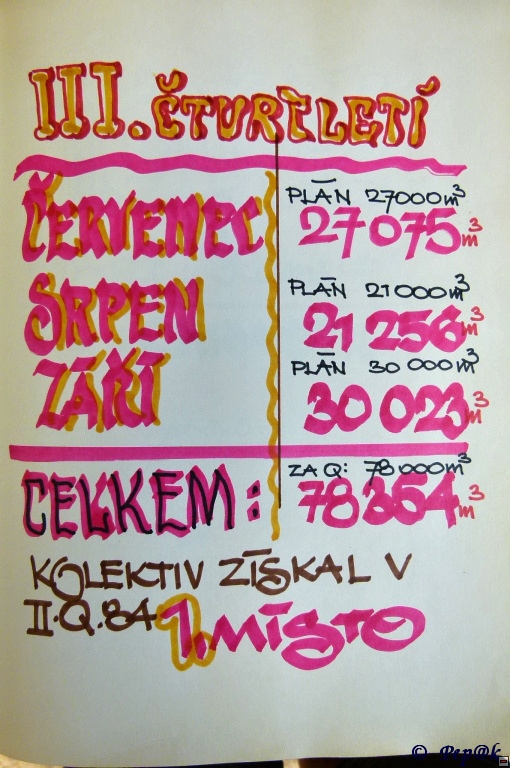 III. ČTVRTLETÍ
ČERVENEC
PLÁN 27000 m³
27075 m³
SRPEN
PLÁN 21000 m³
21 256 m³
ZÁŘÍ
PLÁN 30 000 m³
30 023 m³
CELKEM:
ZA Q: 78000 m³
78354 m³
KOLEKTIV ZÍSKAL V
II·Q.'84 1. MÍSTO
© Pep@k